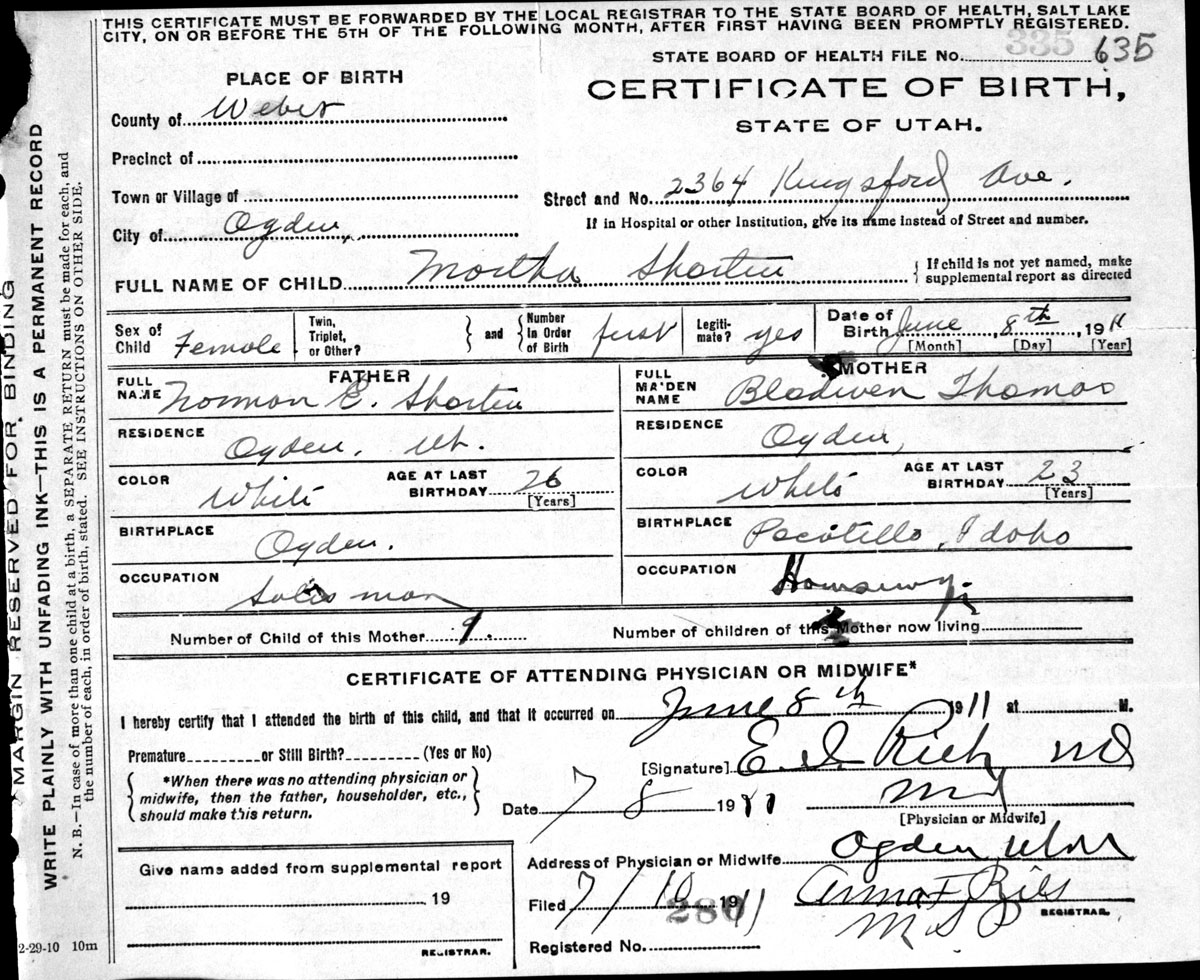 THIS CERTIFICATE MUST BE FORWARDED BY THE LOCAL REGISTRAR TO THE STATE BOARD OF HEALTH, SALT LAKE
CITY, ON OR BEFORE THE 5TH OF THE FOLLOWING MONTH, AFTER FIRST HAVING BEEN PROMPTLY REGISTERED.
335
STATE BOARD OF HEALTH FILE No. 635
PLACE OF BIRTH
CERTIFICATE OF BIRTH,
STATE OF UTAH.
County of Weber
Precinct of
Town or Village of
Street and No. 2364 Kingsford Ave.
If in Hospital or other Institution, give its name instead of Street and number.
City of Ogden
FULL NAME OF CHILD Martha Shorten
If child is not yet named, make
supplemental report as directed
Sex of Child Female
Twin, Triplet, or Other?
and
Number In Order of Birth first
Legiti- mate? yes
Date of Birth June 8th 1911
[Month] [Day] [Year]
FATHER
FULL NAME Norman E. Shorten
RESIDENCE
Ogden, Ut.
COLOR White
AGE AT LAST BIRTHDAY 26
[Years]
BIRTHPLACE
Ogden.
OCCUPATION
Salesman
MOTHER
FULL MAIDEN NAME Blodwen Thomas
RESIDENCE
Ogden,
COLOR White
AGE AT LAST BIRTHDAY 23
[Years]
BIRTHPLACE
Pocatello, Idaho
OCCUPATION
Housewife
Number of Child of this Mother
Number of children of this Mother now living
CERTIFICATE OF ATTENDING PHYSICIAN OR MIDWIFE*
I hereby certify that I attended the birth of this child, and that it occurred on June 8th 1911 at M.
Premature or Still Birth? (Yes or No)
*When there was no attending physician or
midwife, then the father, householder, etc.,
should make this return.
[Signature] E. I. Rich MD
Date 7 8 1911
MD
[Physician or Midwife]
Address of Physician or Midwife Ogden Utah
Give name added from supplemental report
19
REGISTRAR.
Filed 7/10 1911
280
REGISTRAR.
Registered No.
2-29-10 10m
MARGIN RESERVED FOR BINDING
WRITE PLAINLY WITH UNFADING INK—THIS IS A PERMANENT RECORD
N. B.—In case of more than one child at a birth, a SEPARATE RETURN must be made for each, and
the number of each, in order of birth, stated. SEE INSTRUCTIONS ON OTHER SIDE.